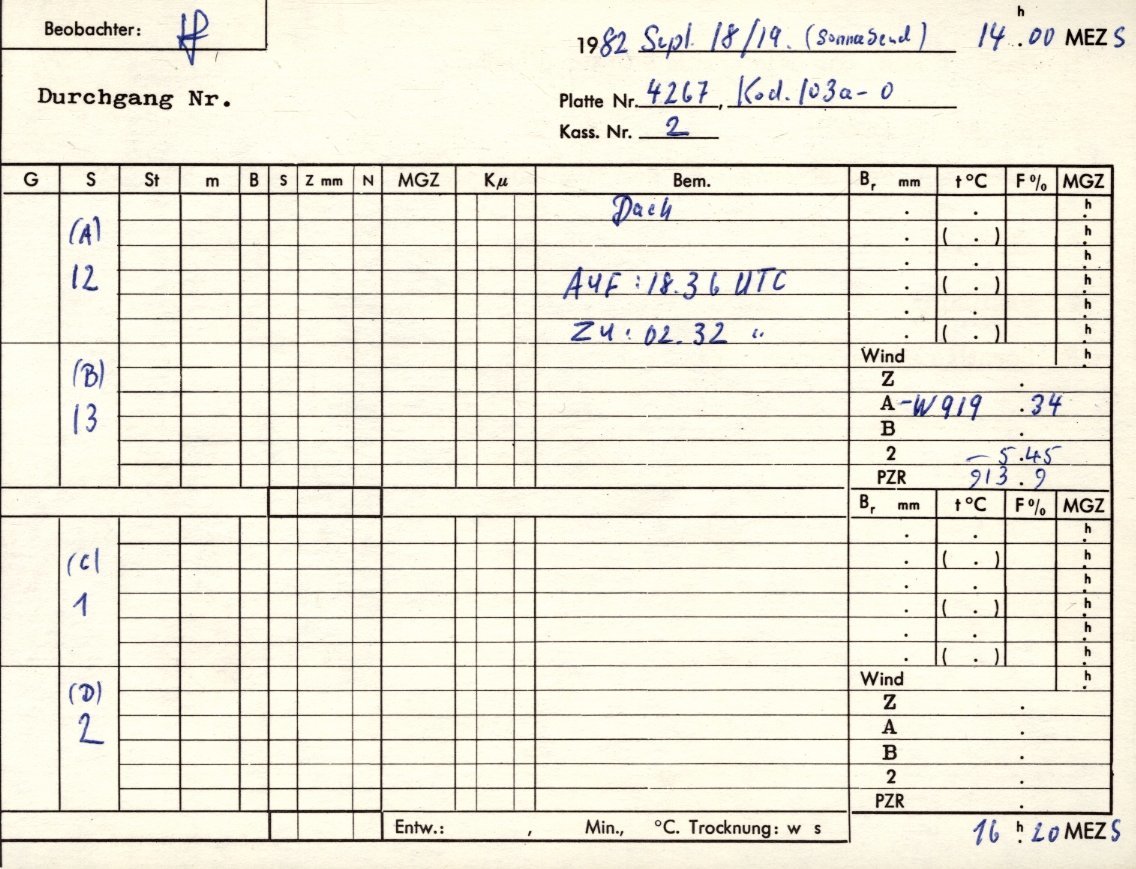 Beobachter:
1982 Sept. 18/19. (Sonnabend) 14 h 00 MEZ S
Durchgang Nr.
Platte Nr. 4267, Kod. 103a-0
Kass. Nr. 2
G S St m B S Z mm N MGZ Kμ Bem. Br mm t °C F % MGZ
Dach . . h
(A) . ( . ) h
. . h
12 AUF : 18.36 UTC . ( . ) h
. . h
ZU : 02.32 " . ( . ) h
Wind h
(B) Z .
13 A -W 919 .34
B .
2 - 5.45
PZR 913.9
Br mm t °C F % MGZ
. . h
(C) . ( . ) h
. . h
1 . ( . ) h
. . h
. ( . ) h
Wind h
(D) Z .
2 A .
B .
2 .
PZR .
Entw.: , Min., °C. Trocknung: w s
16 h 20 MEZ S